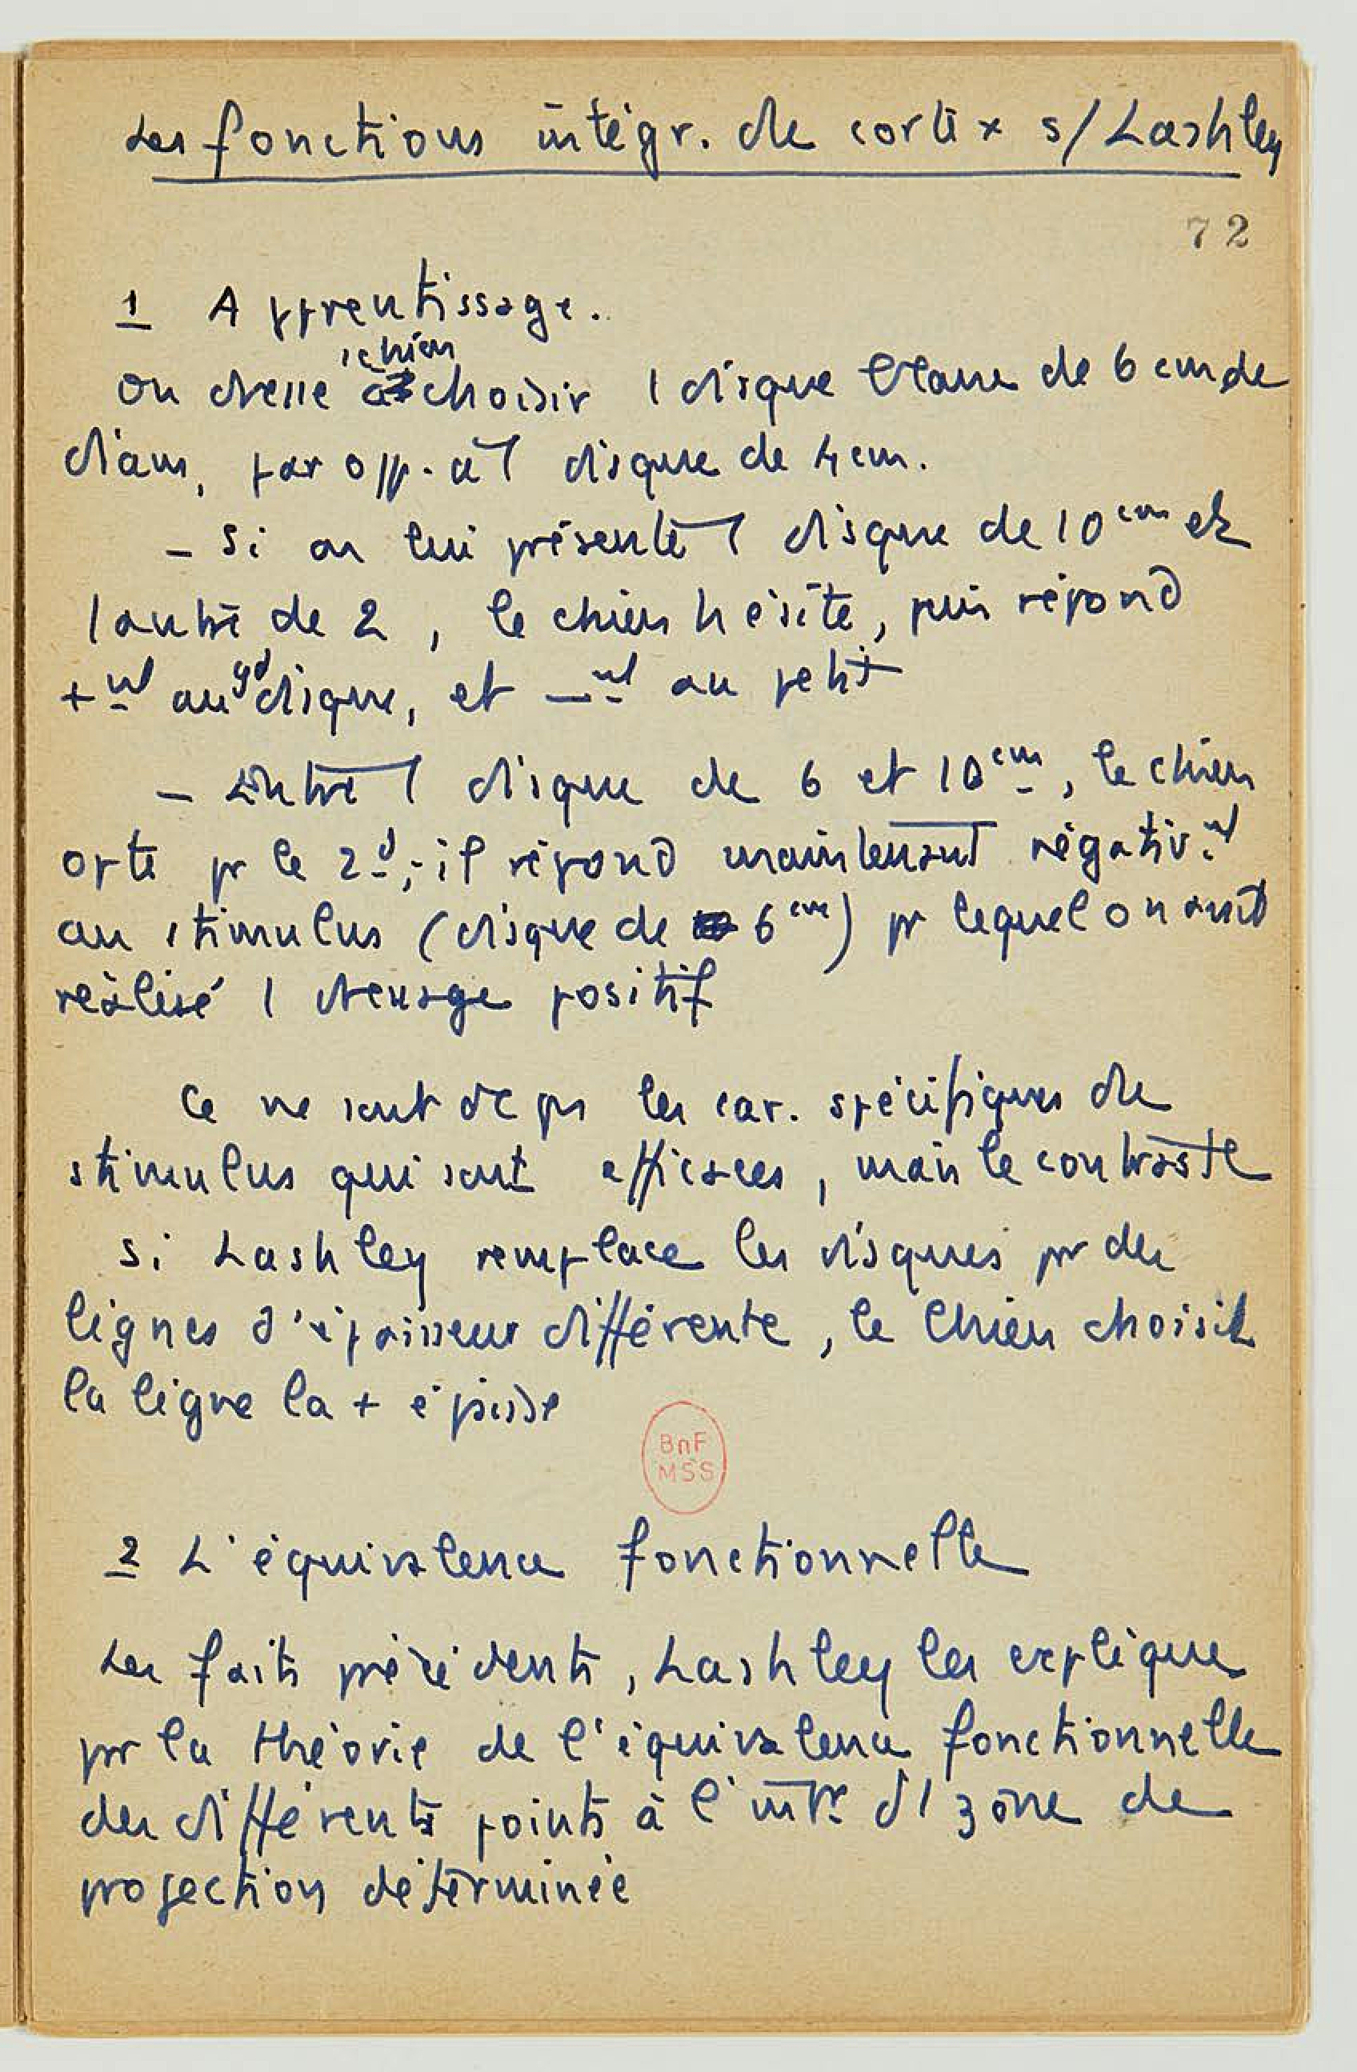 Les fonctions intégr. du cortex s/ Lashley
72
1 Apprentissage.
1 chien
On dresse à choisir 1 disque blanc de 6 cm de
diam, par opp. à 1 disque de 4 cm.
– Si on lui présente 1 disque de 10 cm et
1 autre de 2, le chien hésite, puis répond
+nt au gd disque, et –nt au petit
– Entre 1 disque de 6 et 10 cm, le chien
opte pr le 2d ; il répond maintenant négativnt
au stimulus (disque de 6 cm) pr lequel on avait
réalisé 1 dressage positif
Ce ne sont dc pas les car. spécifiques du
stimulus qui sont efficaces, mais le contraste
Si Lashley remplace les disques par des
lignes d'épaisseur différente, le chien choisit
la ligne la + épaisse
BnF
MSS
2 L'équivalence fonctionnelle
Les faits précédents, Lashley les explique
par la théorie de l'équivalence fonctionnelle
des différents points à l'intr d'1 zône de
projection déterminée